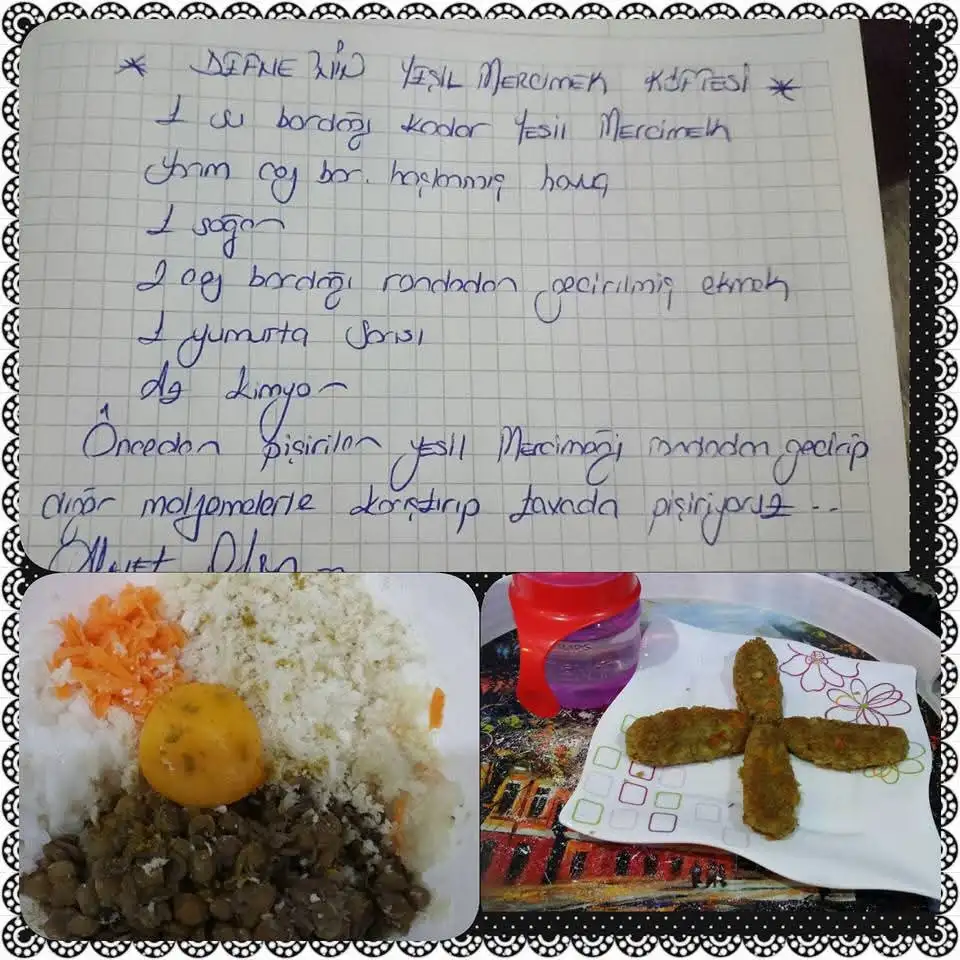 * DEFNE'NİN YEŞİL MERCİMEK KÖFTESİ *
1 su bardağı kadar Yeşil Mercimek
Yarım çay bar. haşlanmış havuç
1 soğan
2 çay bardağı rondodan geçirilmiş ekmek
1 yumurta sarısı
az kimyon
Önceden pişirilen yeşil Mercimeği rondodan geçirip
diğer malzemelerle karıştırıp tavada pişiriyoruz...